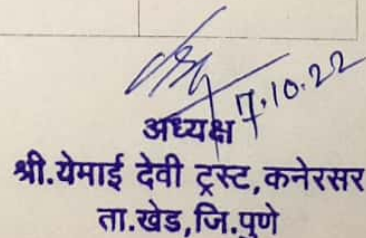 7.10.22
अध्यक्ष
श्री.येमाई देवी ट्रस्ट,कनेरसर
ता.खेड,जि.पुणे